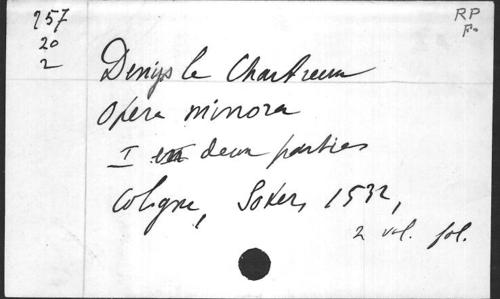 257
20
2
RP
F.
Denys le Chartreux
Opera minora
I en deux parties
Cologne, Soter, 1532,
2 vol. fol.